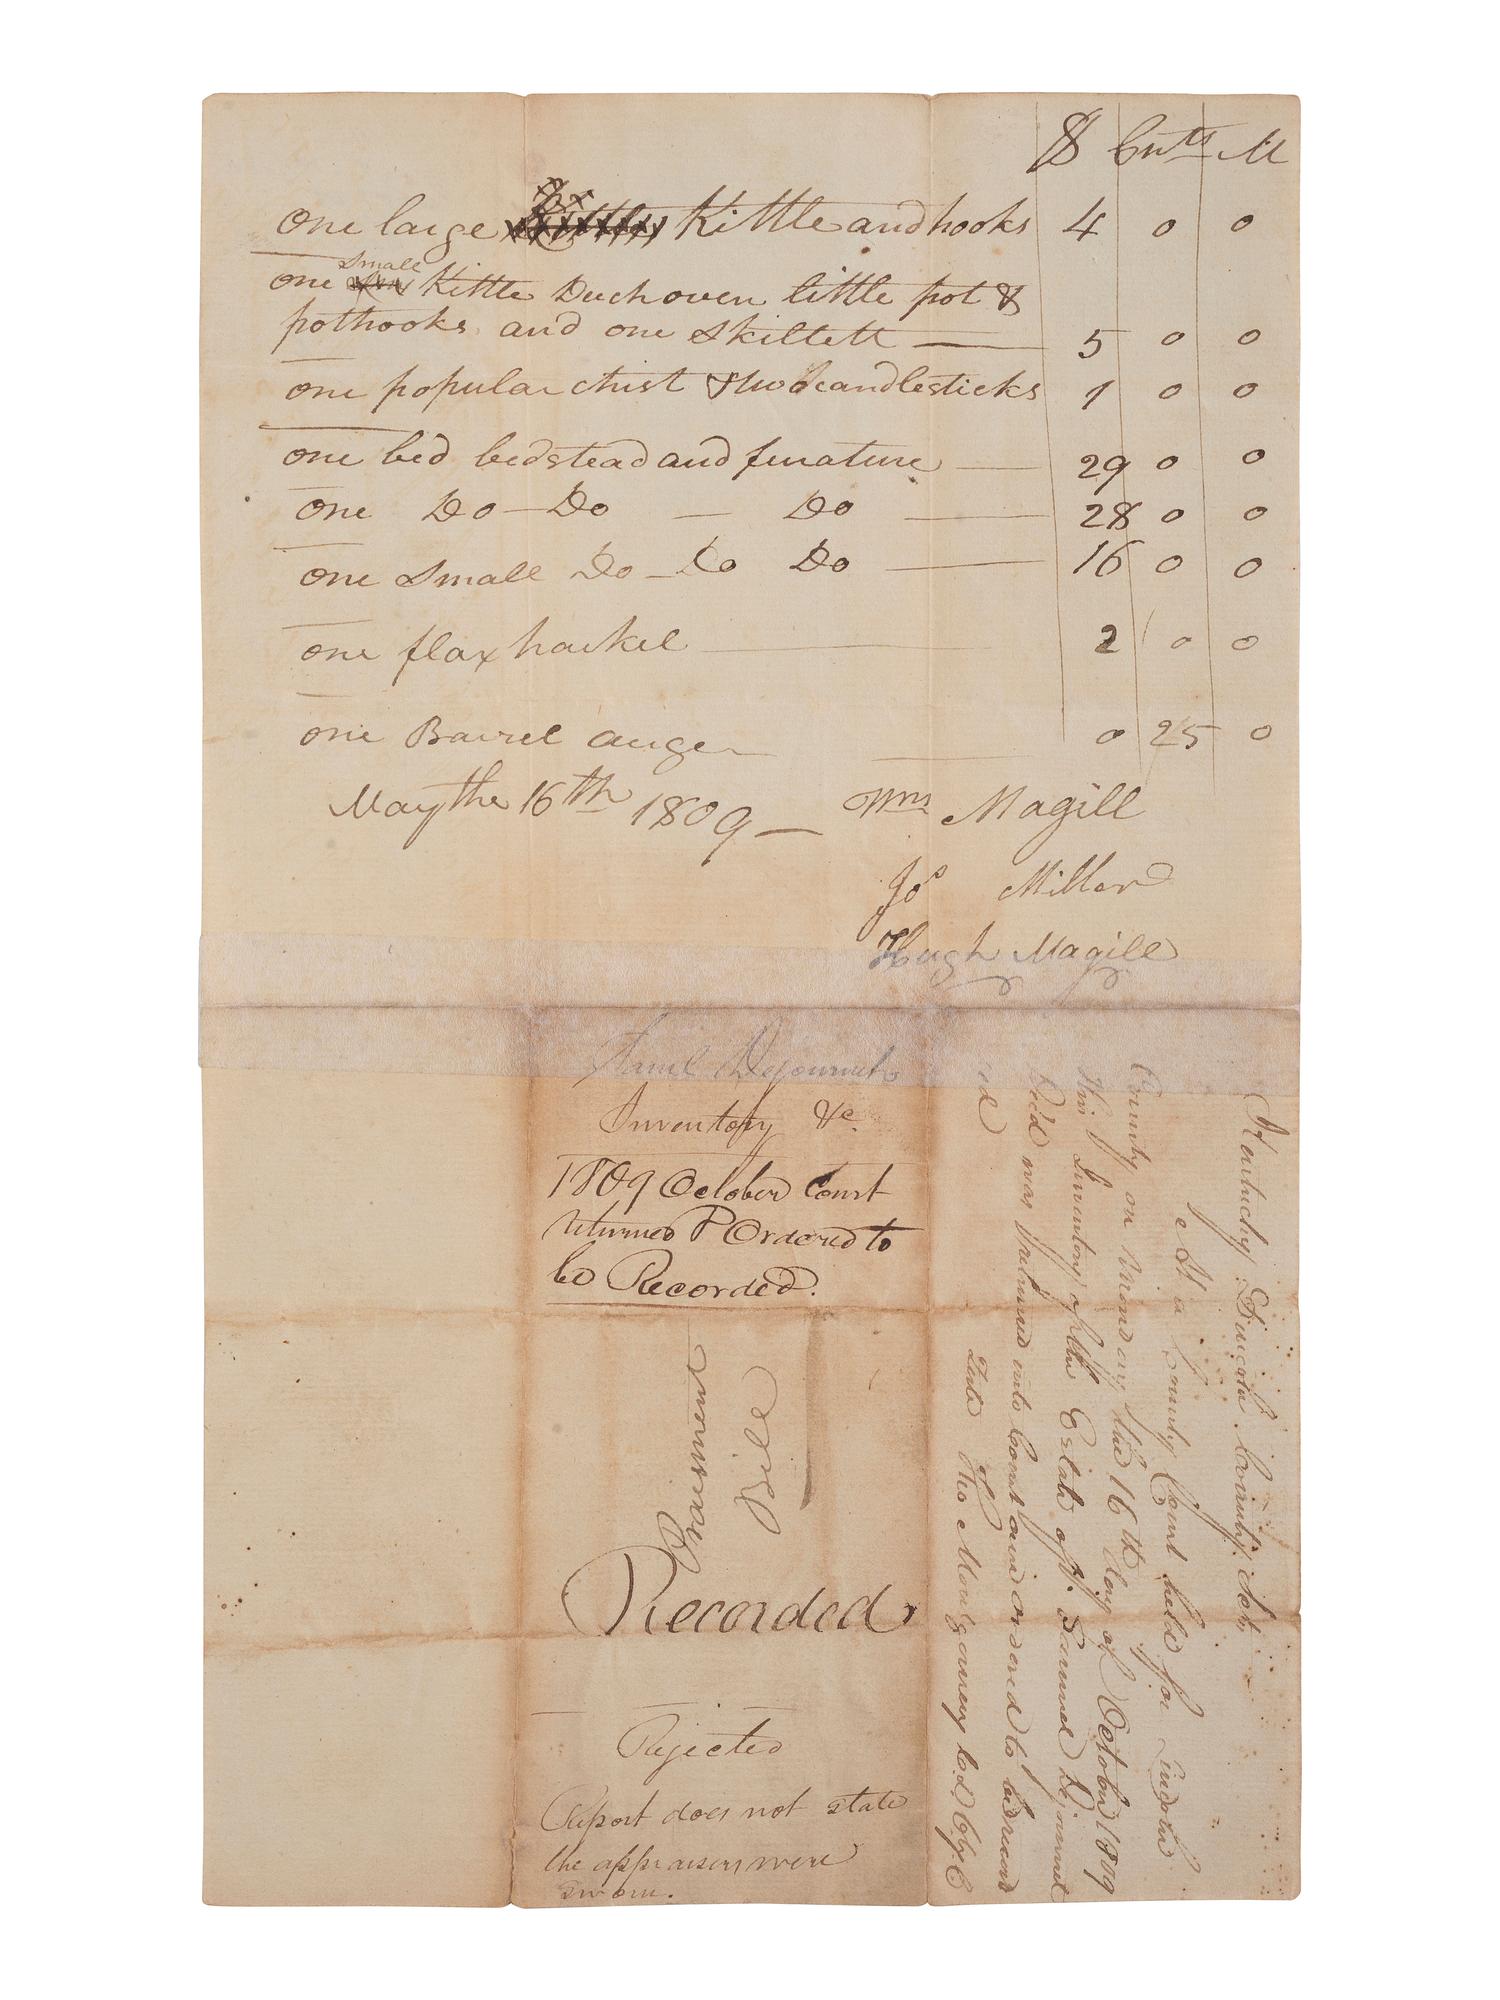 $ Cnts M
one large Kittle and hooks 4 0 0
one small Kittle Duch oven little pot &
pothooks and one Skillett 5 0 0
one popular chist & two candlesticks 1 0 0
one bed bedstead and furnature 29 0 0
one Do - Do - Do 28 0 0
one Small Do - Do Do 16 0 0
one flax hackel 2 0 0
one Barrel auger 0 25 0
May the 16th 1809 - Wm Magill
Jos Miller
Hugh Magill
Saml Dejournet
Inventory &c.
1809 October Court
returned & Ordered to
be Recorded.
Bill
Recorded
Rejected
Report does not state
the appraisers were
sworn.
Kentucky Lincoln County. Sct,
At a County Court held for Lincoln
County on monday the 16th day of October 1809
This Inventory of the Estate of Samuel Dejournet
Decd was returned into Court and ordered to be record
ed
Teste Tho Montgomery